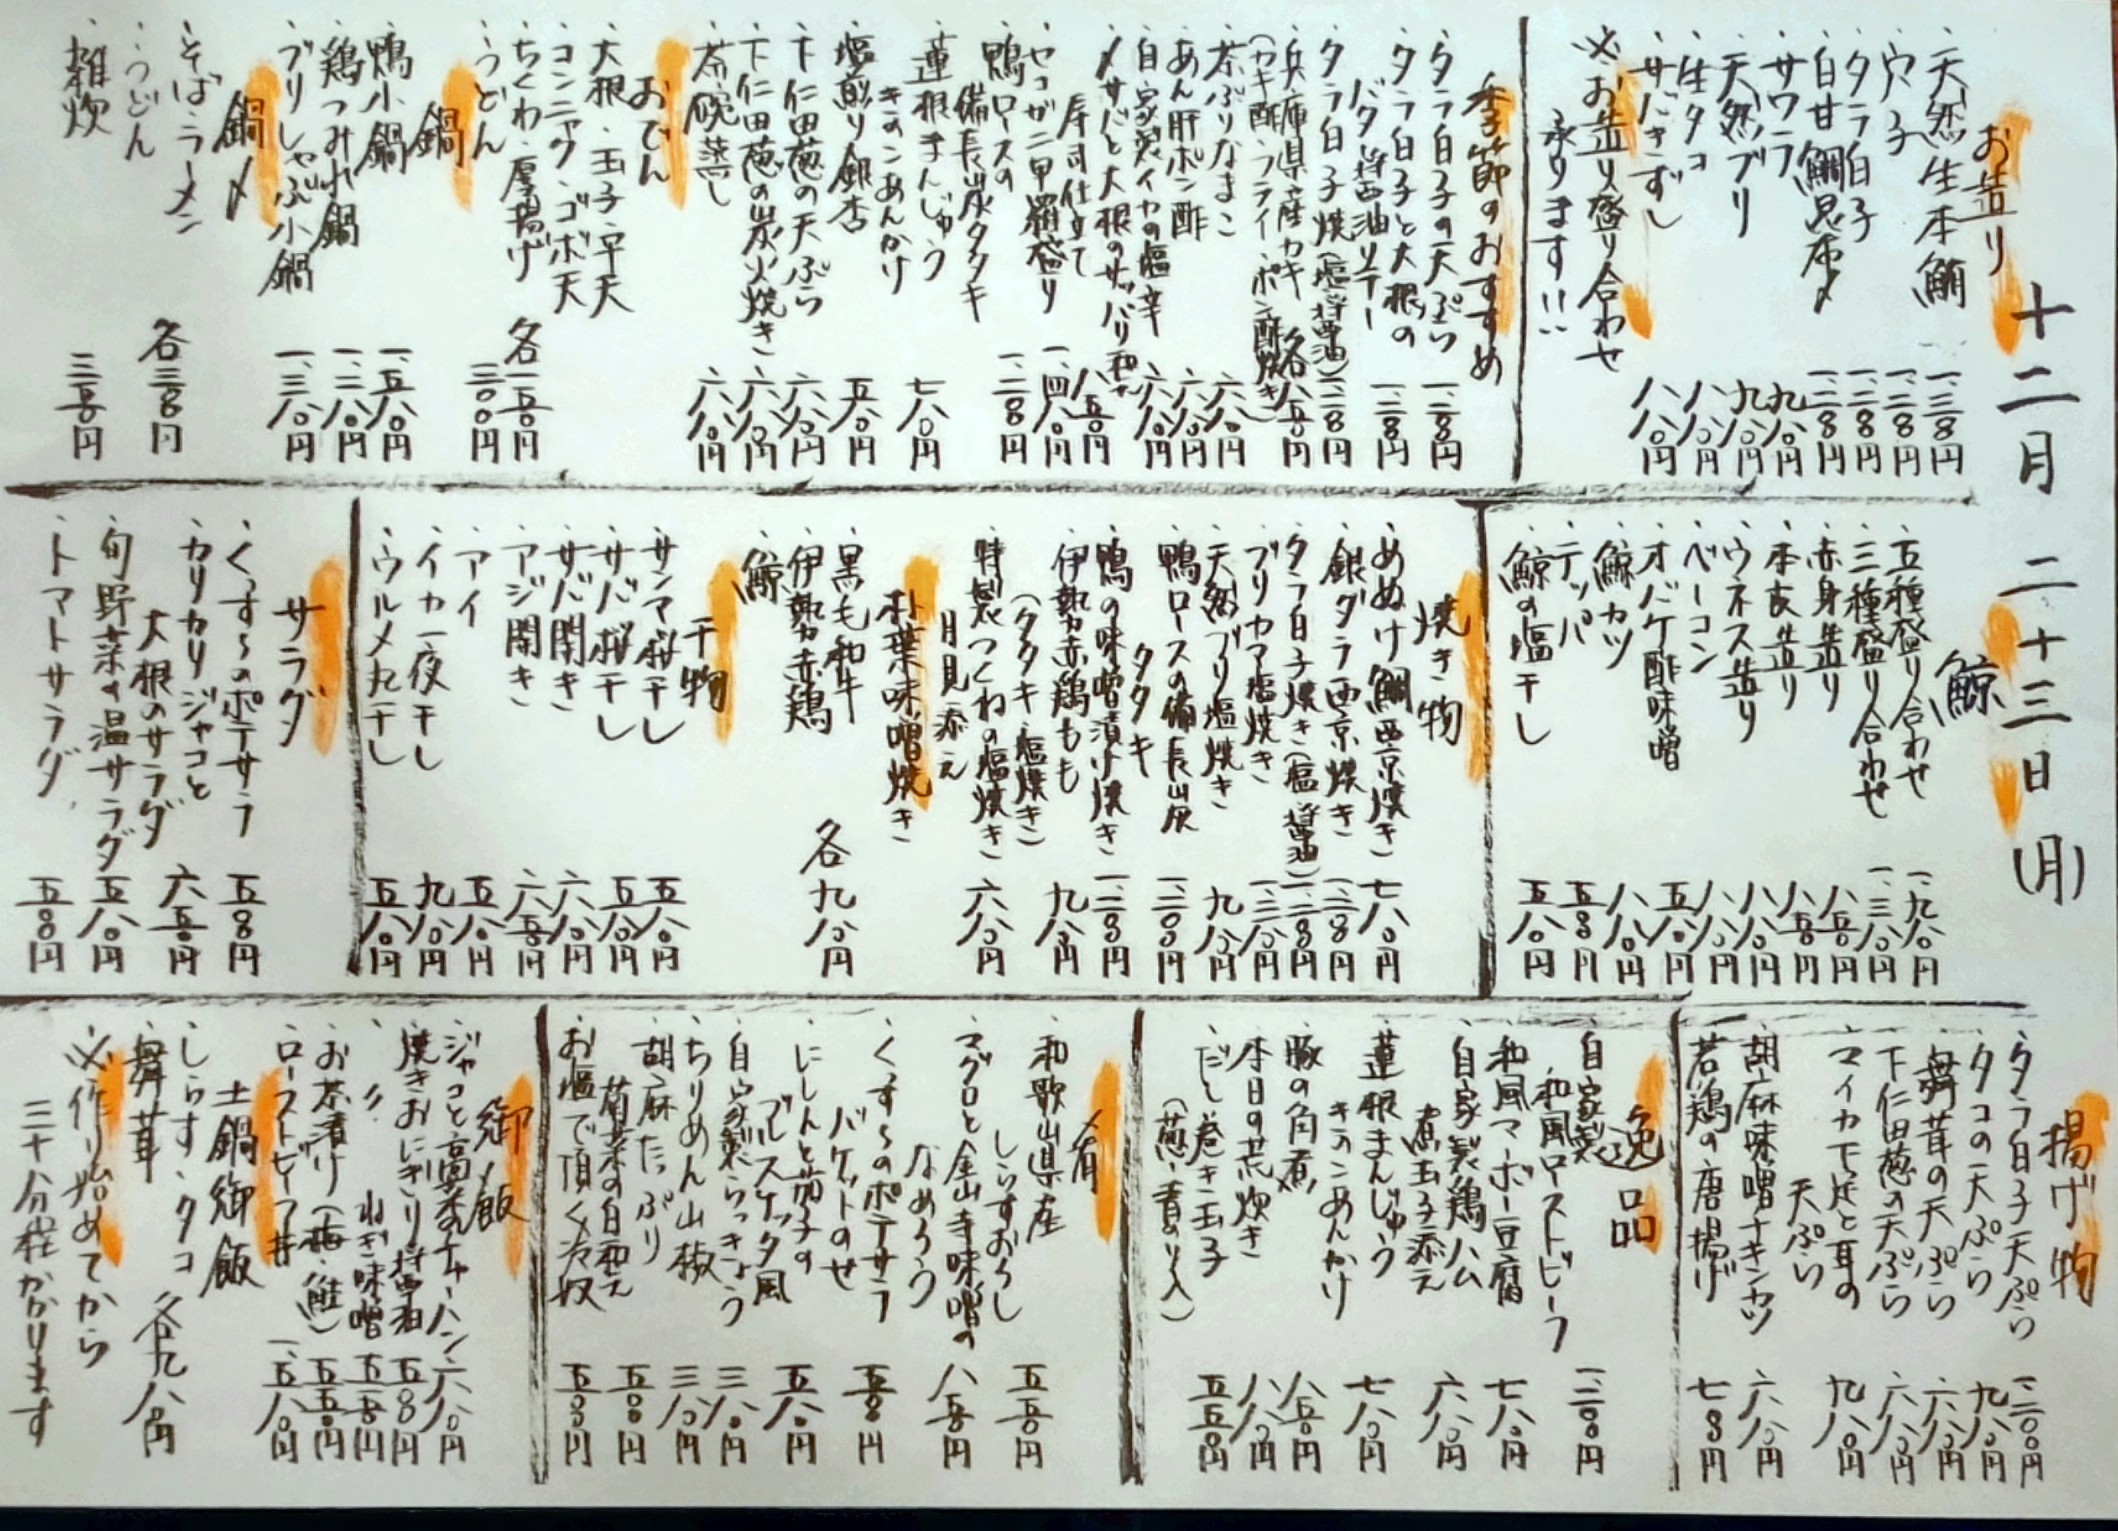 十二月 二十三日(月)
お造り
・天然生本鮪
・穴子
・タラ白子
・白甘鯛昆布〆
・サワラ
・天然ブリ
・生タコ
・サバきずし 八八〇円
※お造り盛り合わせ
承ります!!
季節のおすすめ
・タラ白子の天ぷら
・タラ白子と大根の
バター醤油ソテー
・タラ白子焼(塩・醤油)
・兵庫県産カキ 各八五〇円
(カキ酢・フライ・ポン酢焼き)
・茶ぶりなまこ 六八〇円
・あん肝ポン酢 六八〇円
・自家製イカの塩辛 六八〇円
・〆サバと大根のサッパリ和え
寿司仕立て 八五〇円
・セコガニ甲羅盛り 一、四八〇円
・鴨ロースの
備長炭タタキ
・蓮根まんじゅう
きのこあんかけ 七八〇円
・塩煎り銀杏
・下仁田葱の天ぷら 六八〇円
・下仁田葱の炭火焼き 六八〇円
・茶碗蒸し 六八〇円
おでん
・大根・玉子・平天
・コンニャク・ゴボ天
・ちくわ・厚揚げ
・うどん
鍋
・鴨小鍋 一、五八〇円
・鶏つみれ鍋
・ブリしゃぶ小鍋 一、三八〇円
鍋〆
・そば・ラーメン
・うどん
・雑炊
鯨
・五種盛り合わせ 一、九八〇円
・三種盛り合わせ 一、三八〇円
・赤身造り 八五〇円
・本皮造り 八五〇円
・ウネス造り 八八〇円
・ベーコン 八八〇円
・オバケ酢味噌 五八〇円
・鯨カツ 八八〇円
・テッパ
・鯨の塩干し 五八〇円
焼き物
・めぬけ鯛西京焼き 七八〇円
・銀ダラ西京焼き
・タラ白子焼き(塩・醤油)
・ブリカマ塩焼き 一、三八〇円
・天然ブリ塩焼き 九八〇円
・鴨ロースの備長炭
タタキ
・鴨の味噌漬け焼き
・伊勢赤鶏もも 九八〇円
(タタキ・塩焼き)
・特製つくねの塩焼き 六八〇円
月見添え
朴葉味噌焼き
・黒毛和牛
・伊勢赤鶏
・鯨
各九八〇円
干物
・サンマ桜干し 五八〇円
・サバ桜干し 五八〇円
・サバ開き 六八〇円
・アジ開き
・アイ 五八〇円
・イカ一夜干し 九八〇円
・ウルメ丸干し 五八〇円
サラダ
・くっすーのポテサラ
・カリカリジャコと
大根のサラダ 六五〇円
・旬野菜の温サラダ 五八〇円
・トマトサラダ
揚げ物
・タラ白子天ぷら
・タコの天ぷら 九八〇円
・舞茸の天ぷら 六八〇円
・下仁田葱の天ぷら 六八〇円
・マイカ下足と耳の
天ぷら 九八〇円
・胡麻味噌チキンカツ 六八〇円
・若鶏の唐揚げ
逸品
・自家製
和風ローストビーフ
・和風マーボー豆腐 七八〇円
・自家製鶏ハム
煮玉子添え 六八〇円
・蓮根まんじゅう
きのこあんかけ 七八〇円
・豚の角煮 八五〇円
・本日の荒炊き 八八〇円
・だし巻き玉子
(葱・青のり入) 五五〇円
〆肴
・和歌山県産
しらすおろし 五五〇円
・マグロと金山寺味噌の
なめろう 八五〇円
・くっすーのポテサラ
バケットのせ
・にしんと茄子の
ブルスケッタ風 五八〇円
・自家製らっきょう 三八〇円
・ちりめん山椒 三八〇円
・胡麻たっぷり
菊菜の白和え
・お塩で頂く冷奴
御〆飯
・ジャコと高菜チャーハン 六八〇円
・焼きおにぎり醤油
・〃 ねぎ味噌
・お茶漬け(梅・鮭) 五五〇円
・ローストビーフ丼 一、五八〇円
土鍋御飯
・しらす・タコ
・舞茸 各九八〇円
※作り始めてから
三十分程かかります